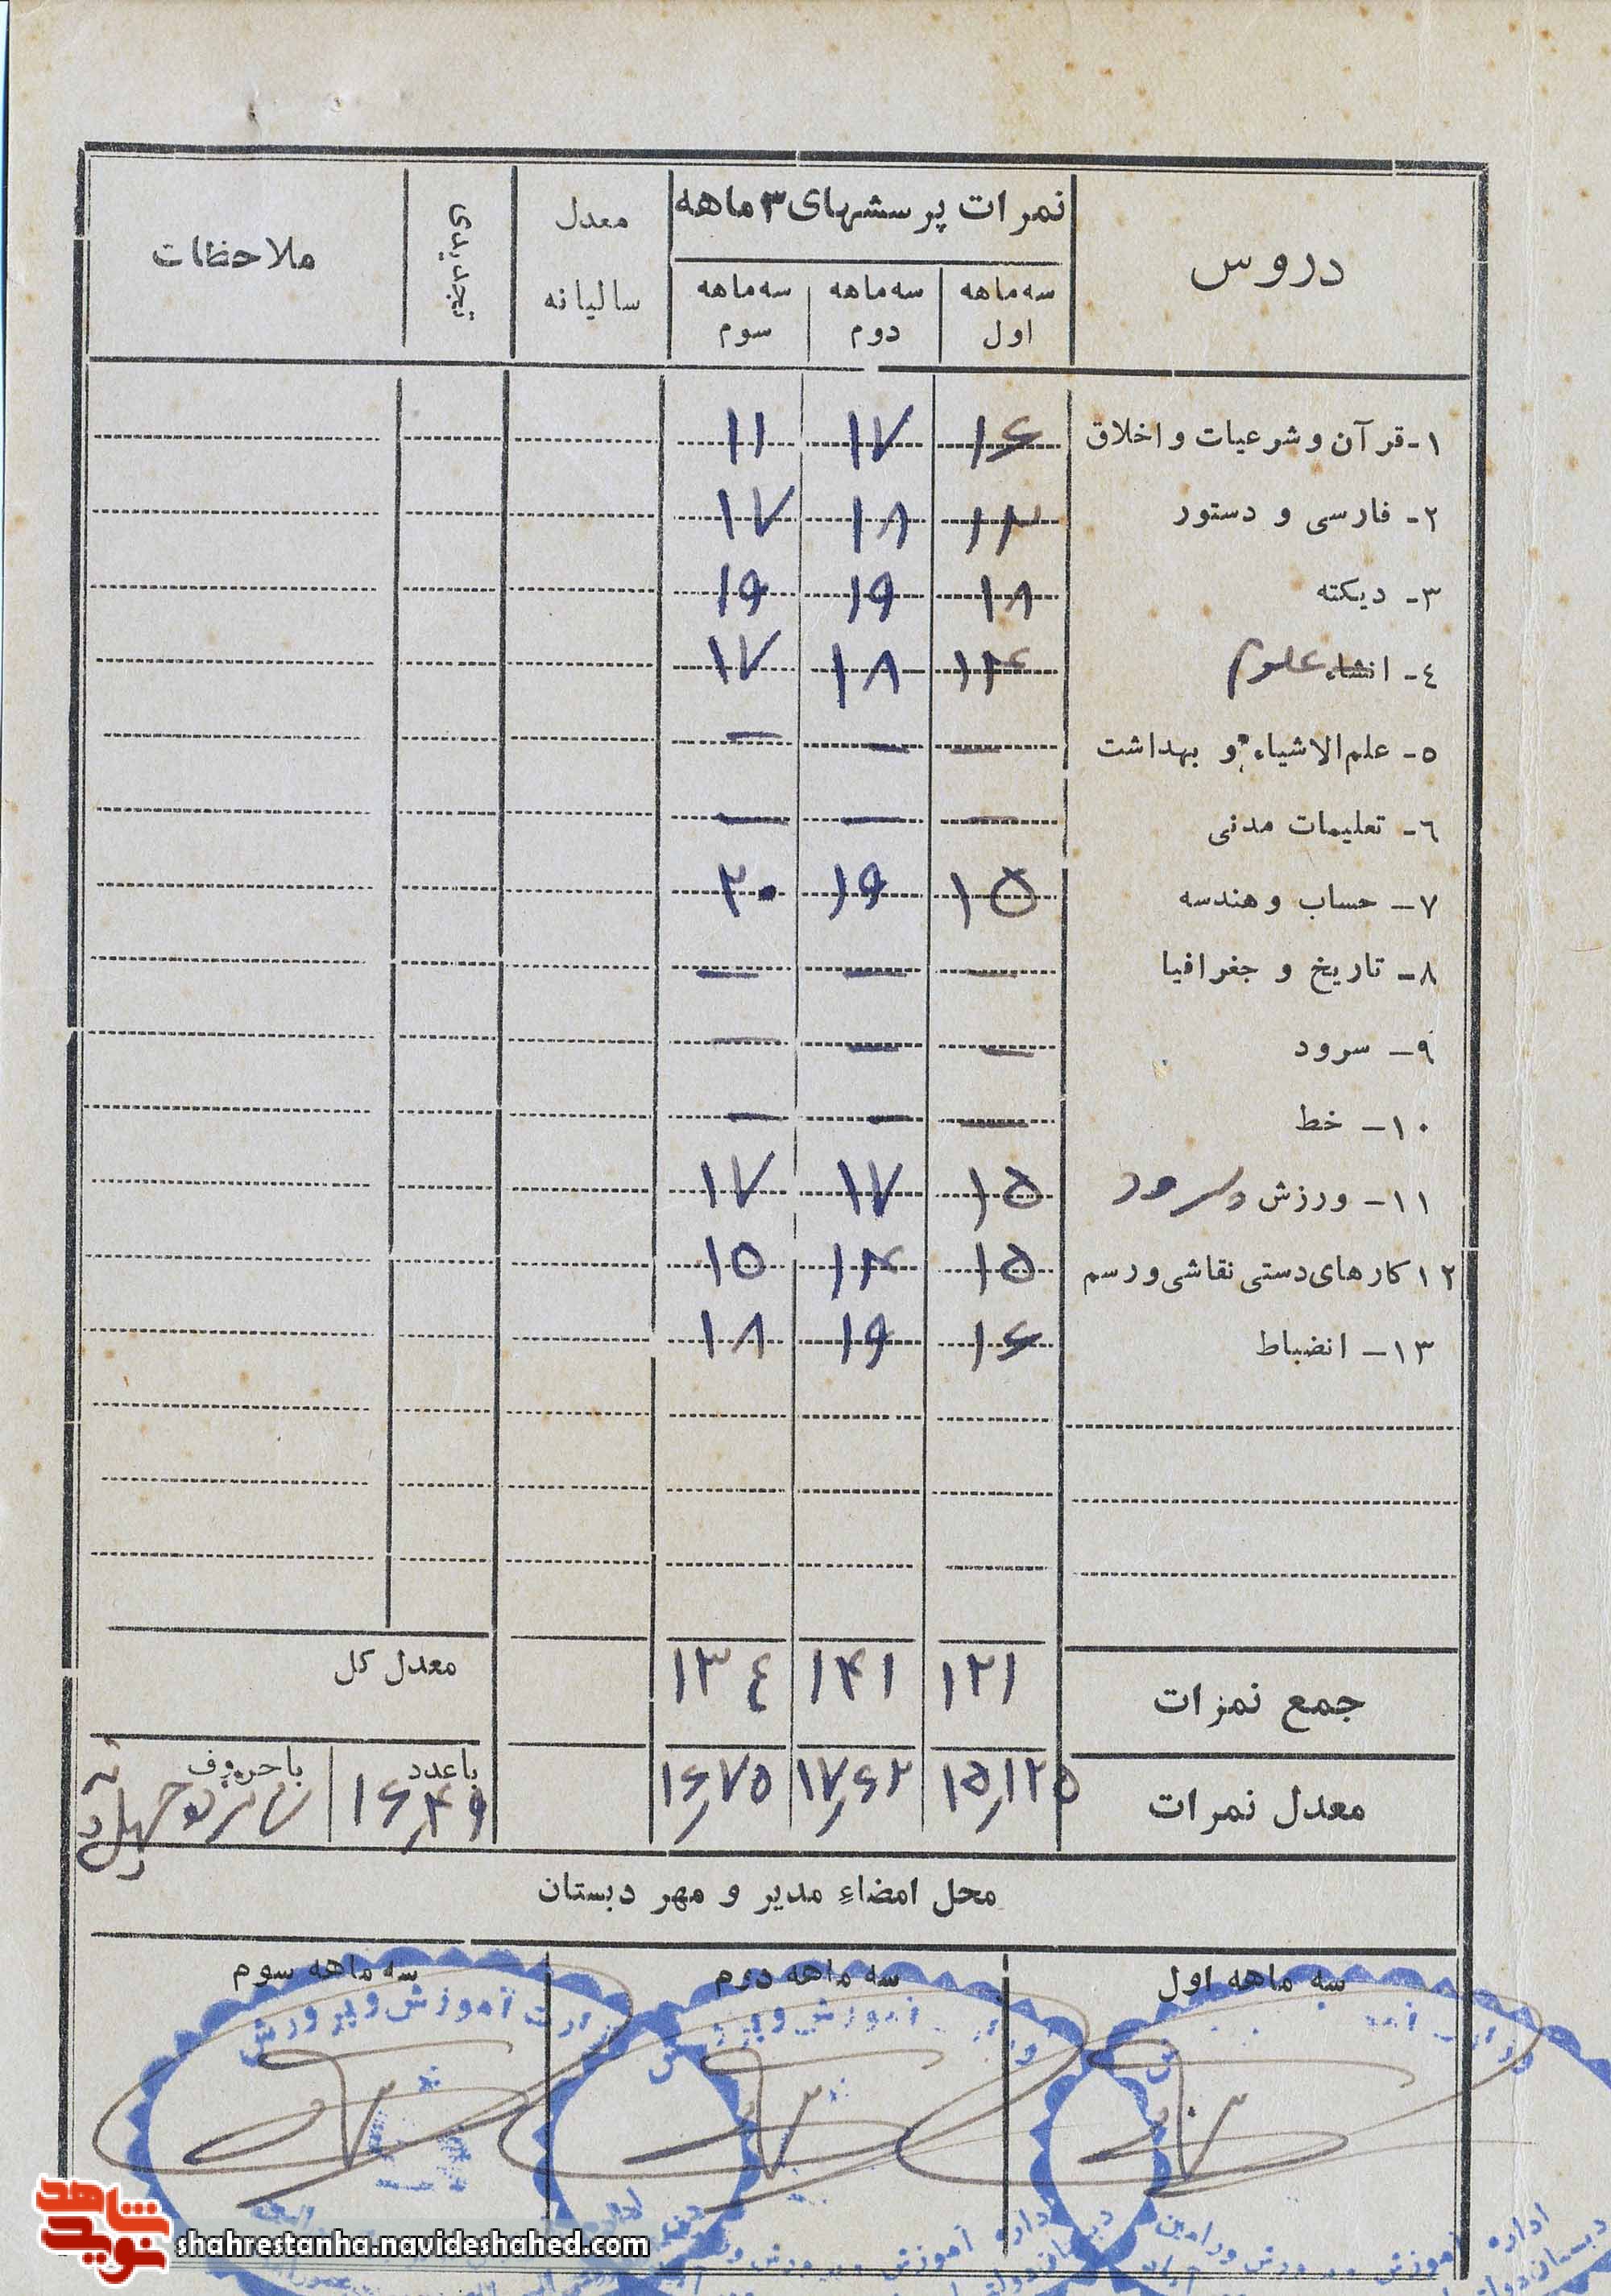 دروس نمرات پرسشهای ۳ ماهه معدل سالیانه تجدیدی ملاحظات
سه ماهه اول سه ماهه دوم سه ماهه سوم
۱- قرآن و شرعیات و اخلاق ۱۶ ۱۷ ۱۱
۲- فارسی و دستور ۱۲ ۱۸ ۱۷
۳- دیکته ۱۸ ۱۹ ۱۹
٤- انشاء علوم ۱۴ ۱۸ ۱۷
۵- علم‌الاشیاء و بهداشت — — —
٦- تعلیمات مدنی — — —
۷- حساب و هندسه ۱۵ ۱۹ ۲۰
۸- تاریخ و جغرافیا — — —
۹- سرود — — —
۱۰- خط — — —
۱۱- ورزش و سرود ۱۵ ۱۷ ۱۷
۱۲ کارهای دستی نقاشی و رسم ۱۵ ۱۴ ۱۵
۱۳- انضباط ۱۶ ۱۹ ۱۸
جمع نمرات ۱۲۱ ۱۴۱ ۱۳٤ معدل کل
معدل نمرات ۱۵٫۱۲۵ ۱۷٫۶۲ ۱۶٫۷۵ باعدد ۱۶٫۴۹ باحروف
محل امضاء مدیر و مهر دبستان
سه ماهه اول سه ماهه دوم سه ماهه سوم
وزارت آموزش و پرورش
نوید شاهد
shahrestanha.navideshahed.com